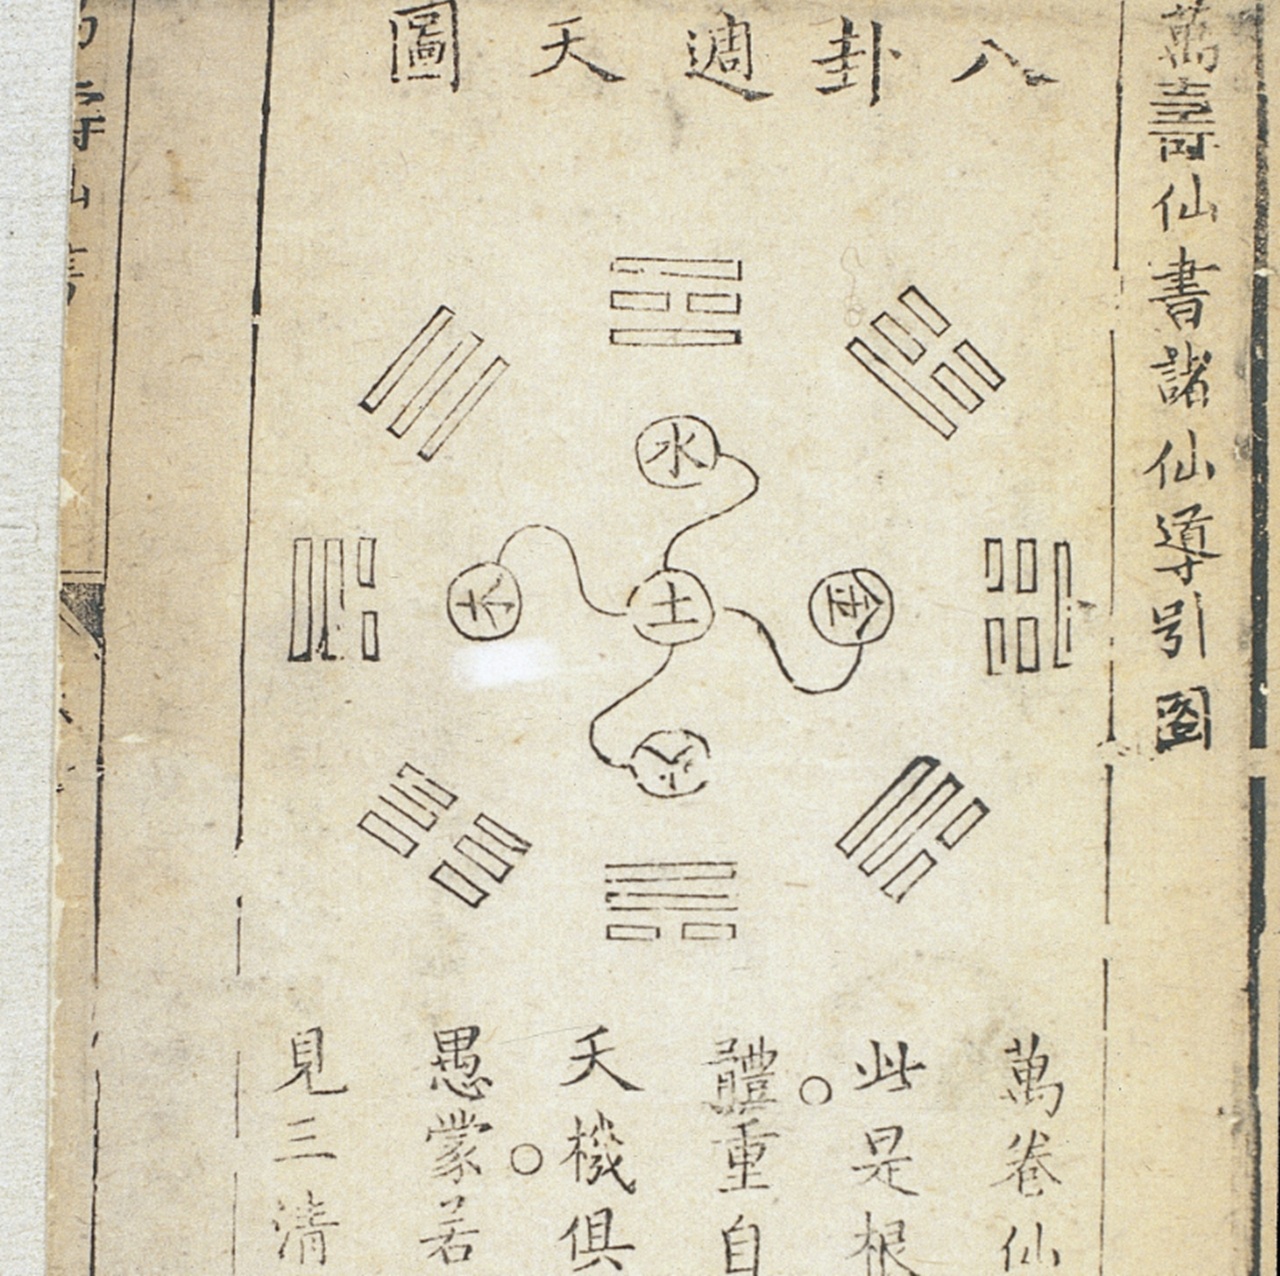 萬壽仙書諸仙導引圖
八卦週天圖
水
木
土
金
火
萬卷仙
此是根
體重自
天機俱
愚蒙若
見三清